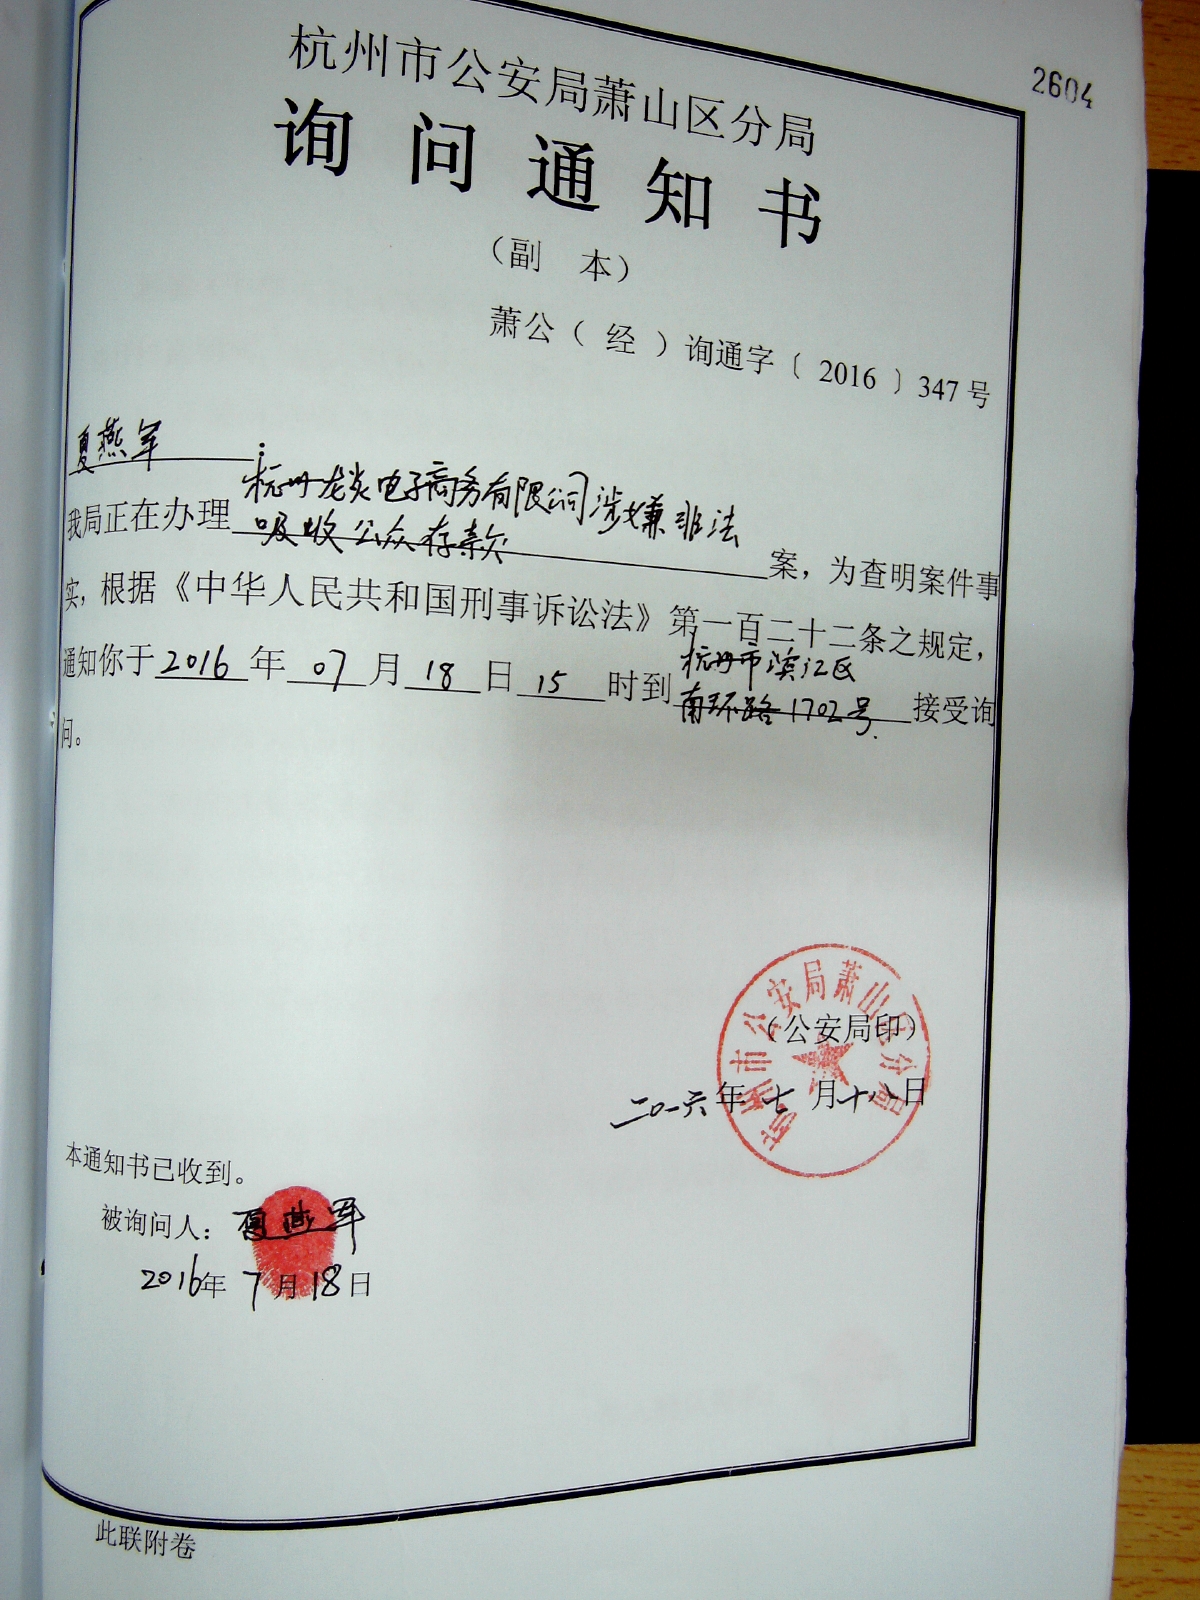 2604
杭州市公安局萧山区分局
询问通知书
（副 本）
萧公（ 经 ）询通字〔 2016 〕347 号
夏燕军：
杭州龙炎电子商务有限公司涉嫌非法
我局正在办理吸收公众存款案，为查明案件事
实，根据《中华人民共和国刑事诉讼法》第一百二十二条之规定，
杭州市滨江区
通知你于2016年07月18日15时到南环路1702号.接受询
问。
杭州市公安局萧山区分局
（公安局印）
二〇一六年七月十八日
本通知书已收到。
被询问人：夏燕军
2016年7月18日
此联附卷